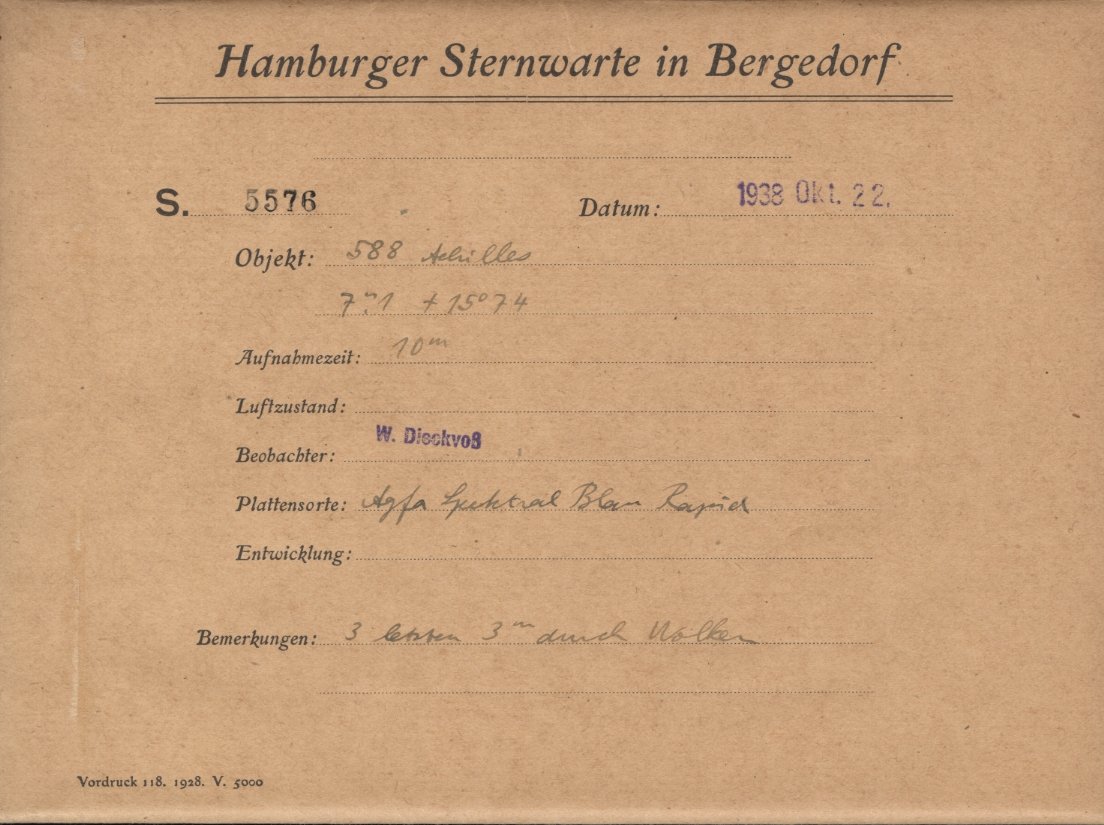 Hamburger Sternwarte in Bergedorf
S. 5576 Datum: 1938 Okt. 22.
Objekt: 588 Achilles
7ᵐ.1 + 15°74
Aufnahmezeit: 10ᵐ
Luftzustand:
Beobachter: W. Dieckvoß
Plattensorte: Agfa Spektral Blau Rapid
Entwicklung:
Bemerkungen: 3 letzten 3ᵐ durch Wolken
Vordruck 118. 1928. V. 5000